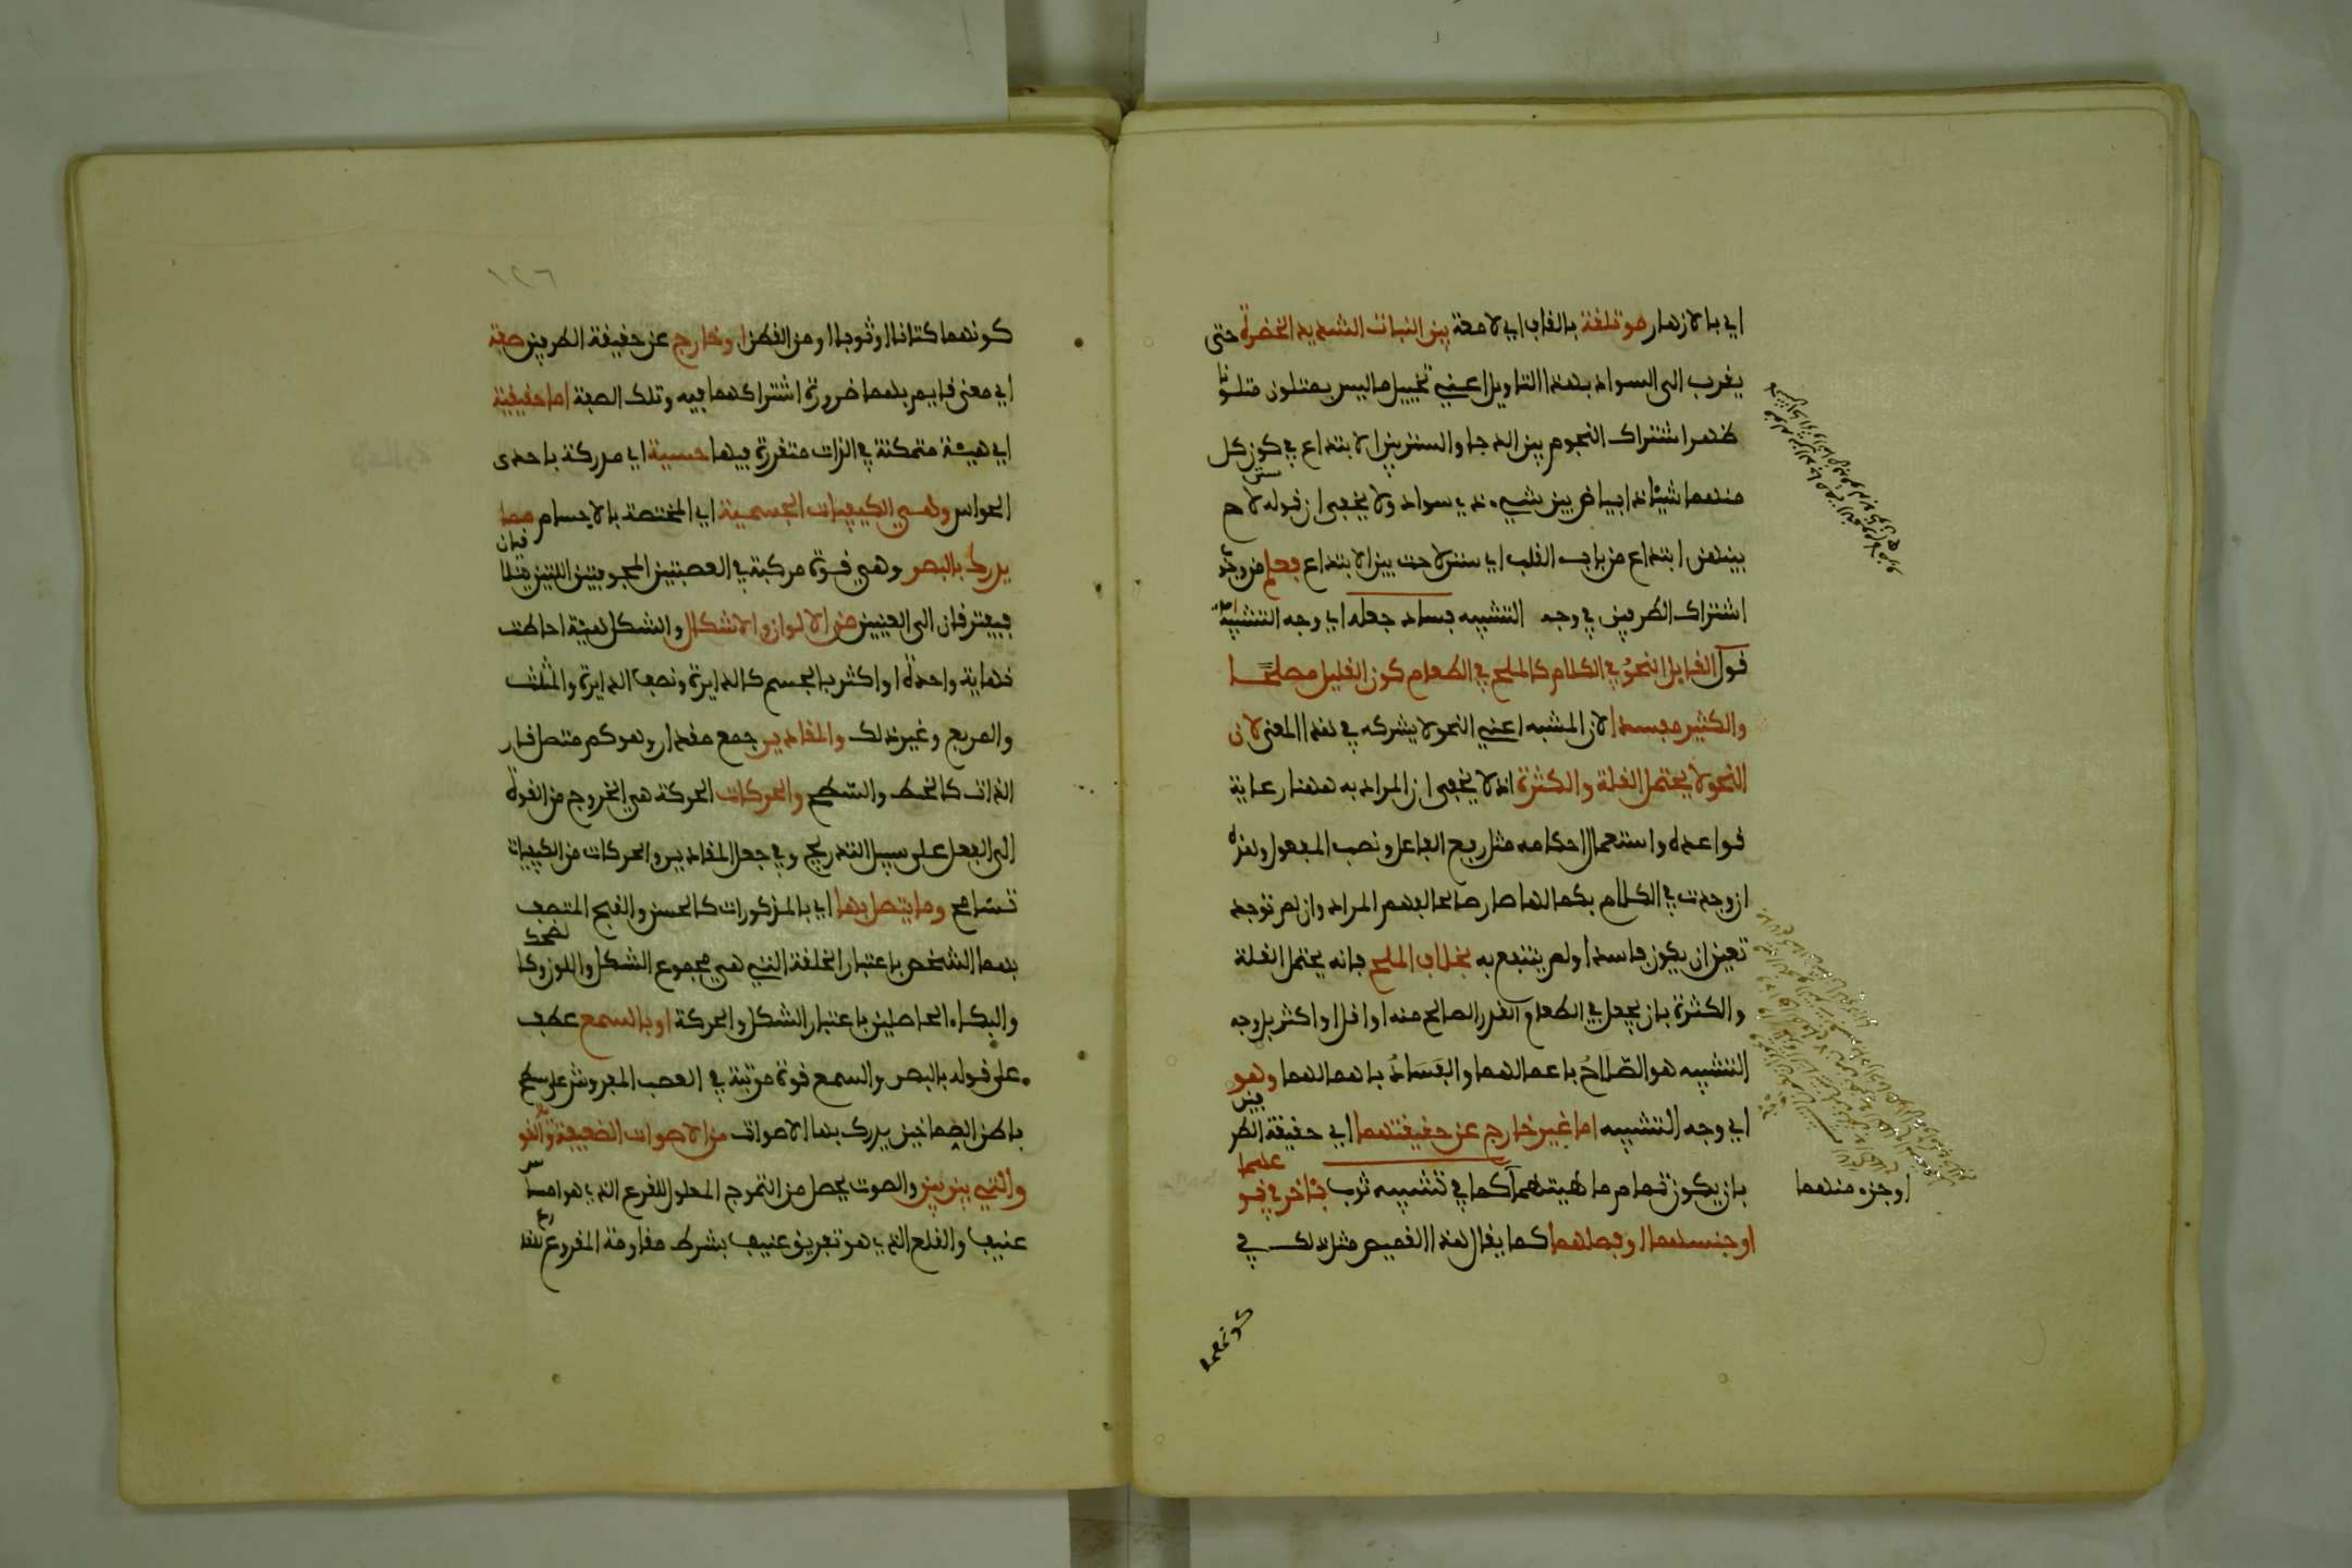 اي بالازهار مؤتلفة بالقاف اي لامعة بين النبات الشديد الخضرة حتى
يقرب الى السواد بهذا التاويل اعني تخييل ما ليس بمتلون متلونا
ظهر اشتراك النجوم بين الدجا والسنن بين الابتداع في كون كل
منهما شيئا ذا بياض بين شيء ذي سواد ولا يخفى ان قوله لاح
بينهن ابتداع من باب القلب اي سنن لاحت بين الابتداع فعلم من وجوب
اشتراك الطرفين في وجه التشبيه فساد جعله اي وجه التشبيه
قول القايل النحو في الكلام كالملح في الطعام كون القليل مصلحا
والكثير مفسدا لان المشبه اعني النحو لا يشركه في هذا المعنى لان
النحو لا يحتمل القلة والكثرة اذ لا يخفى ان المراد به ههنا رعاية
قواعده واستعمال احكامه مثل رفع الفاعل ونصب المفعول وهذه
ان وجدت في الكلام بكمالها صار صالحا لفهم المراد وان لم توجد
تعين ان يكون فاسدا ولم ينتفع به بخلاف الملح فانه يحتمل القلة
والكثرة بان يجعل في الطعام القدر الصالح منه او اقل او اكثر بل وجه
التشبيه هو الصّلاحُ باعمالهما والفَسَادُ باهمالهما وهو
اي وجه التشبيه اما غير خارج عن حقيقتهما اي حقيقة الطرفين
بان يكون تمام ماهيتهما كما في تشبيه ثوب باخر في
او جزء منهما
او جنسهما او فصلهما كما يقال هذا القميص مثل ذلك في
كونهما
١٢٦
كونهما كتانا او ثوبا او من القطن او خارج عن حقيقة الطرفين صفة
اي معنى قايم بهما ضرورة اشتراكهما فيه وتلك الصفة اما حقيقية
اي هيئة متمكنة في الذات متقررة فيها حسية اي مدركة باحدى
الحواس وهي الكيفيات الجسمية اي المختصة بالاجسام مما
يدرك بالبصر وهي قوة مركبة في العصبتين المجوفتين اللتين يتلاقيان
فيفترقان الى العينين من الالوان والاشكال والشكل هيئة احاطت
نهاية واحدة او اكثر بالجسم كالدايرة ونصف الدايرة والمثلث
والمربع وغير ذلك والمقادير جمع مقدار وهو كم متصل قار
الذات كالخط والسّطح والحركات الحركة هي الخروج من القوة
الى الفعل على سبيل التدريج وفي جعل المقادير والحركات من الكيفيات
تسامح وما يتصل بها اي بالمذكورات كالحسن والقبح المتصف
بهما الشخص باعتبار الخلقة التي هي مجموع الشكل واللون وكالضحك
والبكاء الحاصلين باعتبار الشكل والحركة او بالسمع عطف
على قوله بالبصر والسمع قوة مرتبة في العصب المفروش على سطح
باطن الصماخين يدرك بها الاصوات من الاصوات الضعيفة والقوية
والتي بين بين والصوت يحصل من التموج المعلول للقرع الذي هو امساس
عنيف والقلع الذي هو تفريق عنيف بشرط مقاومة المقروع للقارع